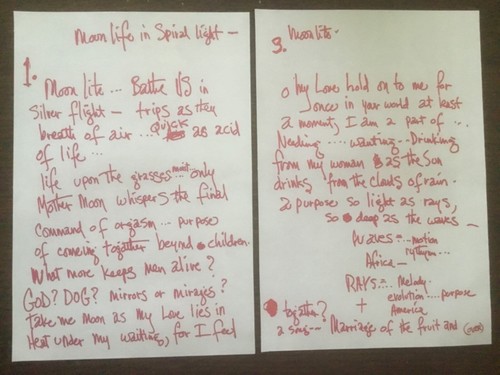 Moon life in Spiral light —
1.
Moon lite ... Bathe US in
Silver flight — trips as the
breath of air ... QUICK as acid
of life ...
life upon the grasses must only
Mother Moon whispers the final
command of orgasm ... purpose
of comeing together beyond children.
What more keeps men alive?
GOD? DOG? mirrors or mirages?
take me Moon as my Love lies in
Heat under my waiting, for I feel
3. Moonlite -
o my Love hold on to me for
once in your world at least
a moment, I am a part of ...
Needing .... wanting -- Drinking
from my woman as the Sun
drinks from the clouds of rain.
a purpose so light as rays,
so deep as the waves —
Waves ... motion
rythym ...
Africa —
RAYS ... Melody
evolution .... purpose
+ America
together?
a song --- Marriage of the fruit and (over)